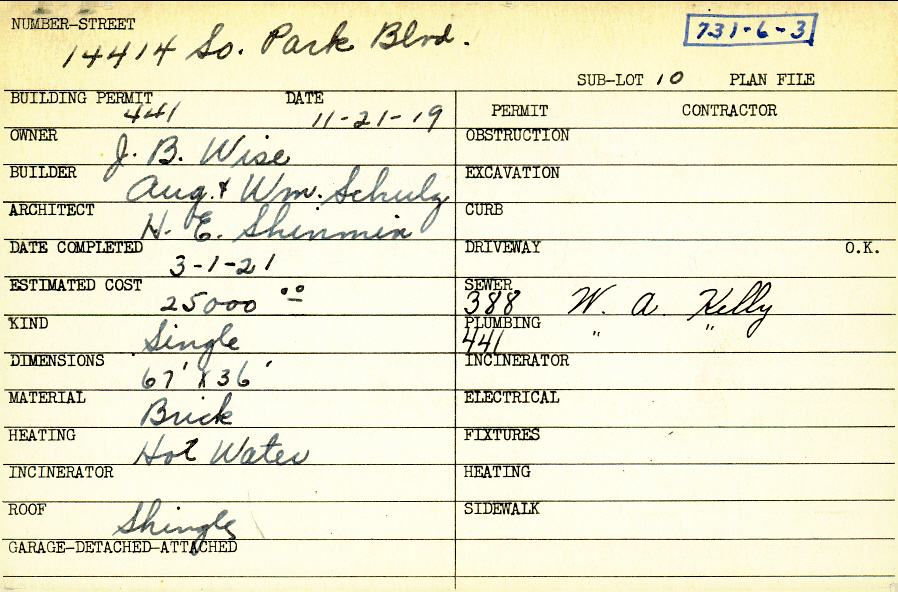 NUMBER-STREET
14414 So. Park Blvd.
731-6-3
SUB-LOT 10 PLAN FILE
BUILDING PERMIT DATE
441 11-21-19
PERMIT CONTRACTOR
OWNER J. B. Wise
OBSTRUCTION
BUILDER Aug. & Wm. Schulz
EXCAVATION
ARCHITECT H. E. Shimmin
CURB
DATE COMPLETED 3-1-21
DRIVEWAY O.K.
ESTIMATED COST 25000 00
SEWER
388 W. A. Kelly
KIND Single
PLUMBING
441 " "
DIMENSIONS 67' x 36'
INCINERATOR
MATERIAL Brick
ELECTRICAL
HEATING Hot Water
FIXTURES
INCINERATOR
HEATING
ROOF Shingle
SIDEWALK
GARAGE-DETACHED-ATTACHED